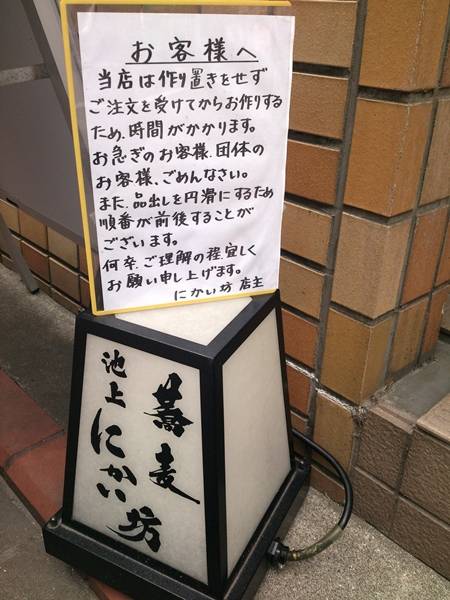 お客様へ
当店は作り置きをせず
ご注文を受けてからお作りする
ため、時間がかかります。
お急ぎのお客様、団体の
お客様、ごめんなさい。
また、品出しを円滑にするため
順番が前後することが
ございます。
何卒、ご理解の程、宜しく
お願い申し上げます。
にかい坊 店主
蕎麦
池上にかい坊